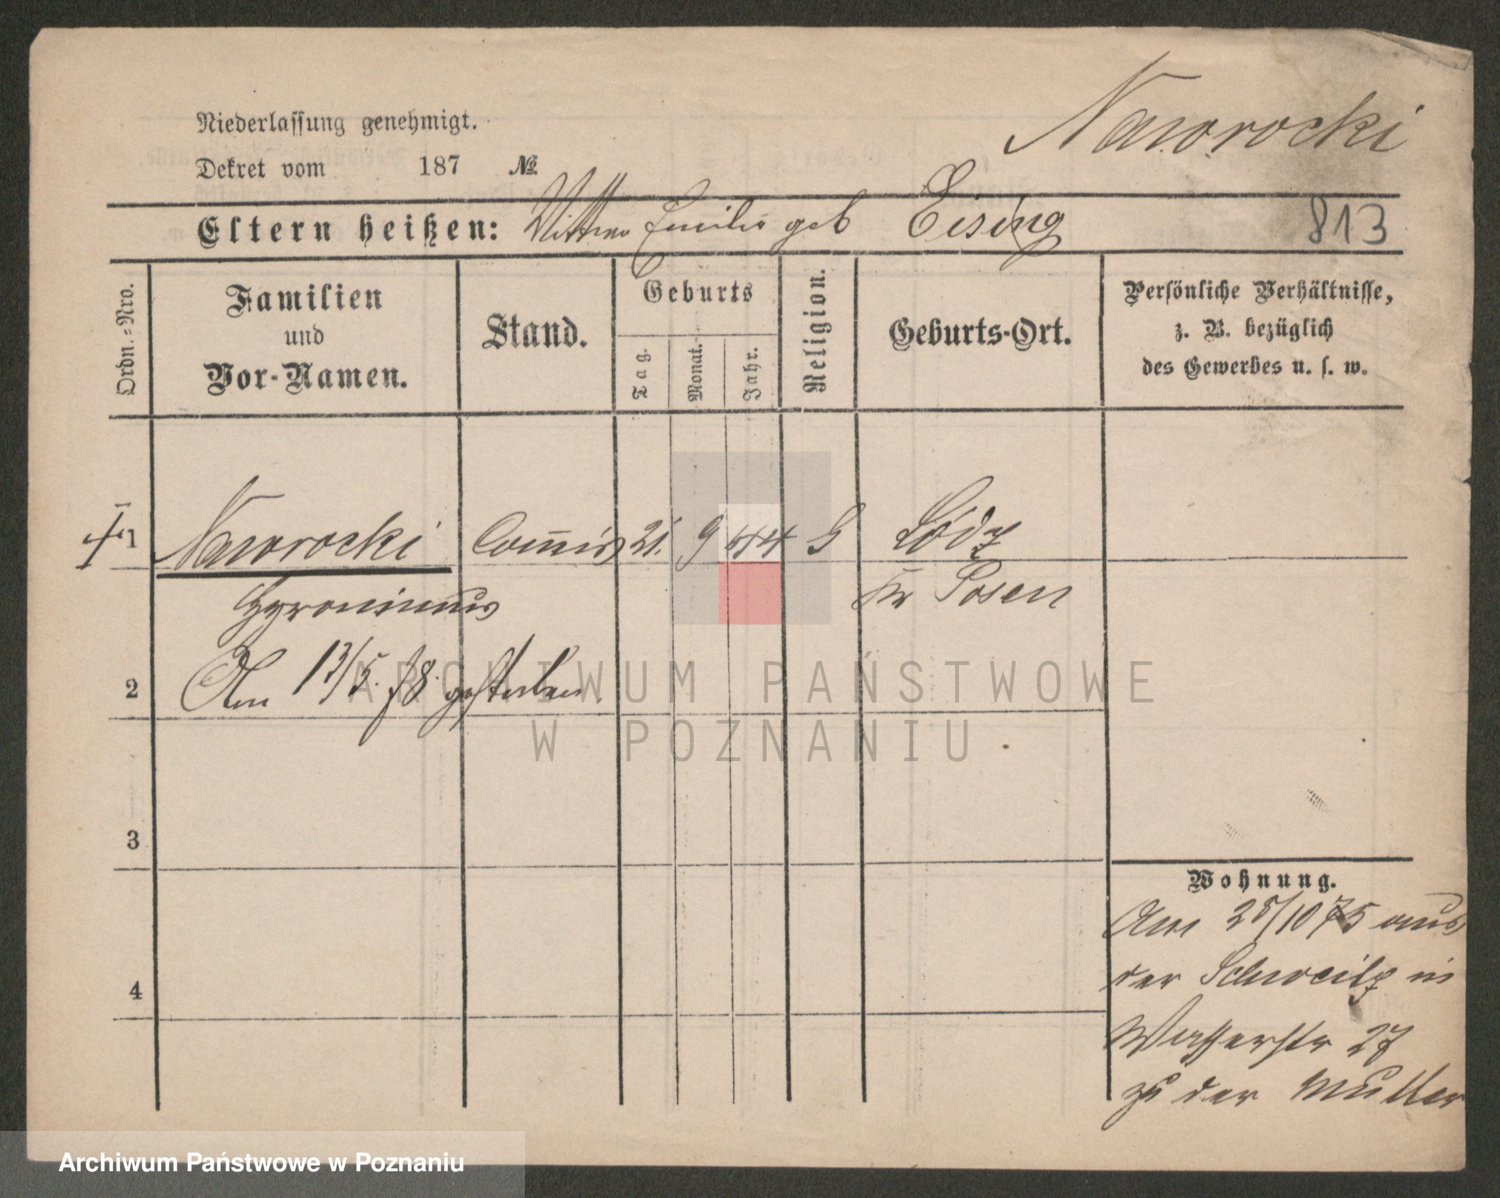 Nawrocki
Niederlassung genehmigt.
Dekret vom 187 №
Eltern heißen: Wittwe Emilie geb Eising 813
Ordn.-Nro.
Familien und Vor-Namen.
Stand.
Geburts
Tag. Monat. Jahr.
Religion.
Geburts-Ort.
Persönliche Verhältnisse,
z. B. bezüglich
des Gewerbes u. s. w.
1 Nawrocki Commis 21. 9 44 Lódz
Hyronimus Kr Posen
2 Am 13/5. 78. gestorben.
ARCHIWUM PAŃSTWOWE
W POZNANIU
3
Wohnung.
Am 25/10 75 aus
4 der Schweitz in
Wasserstr 27
zu der Mutter
Archiwum Państwowe w Poznaniu